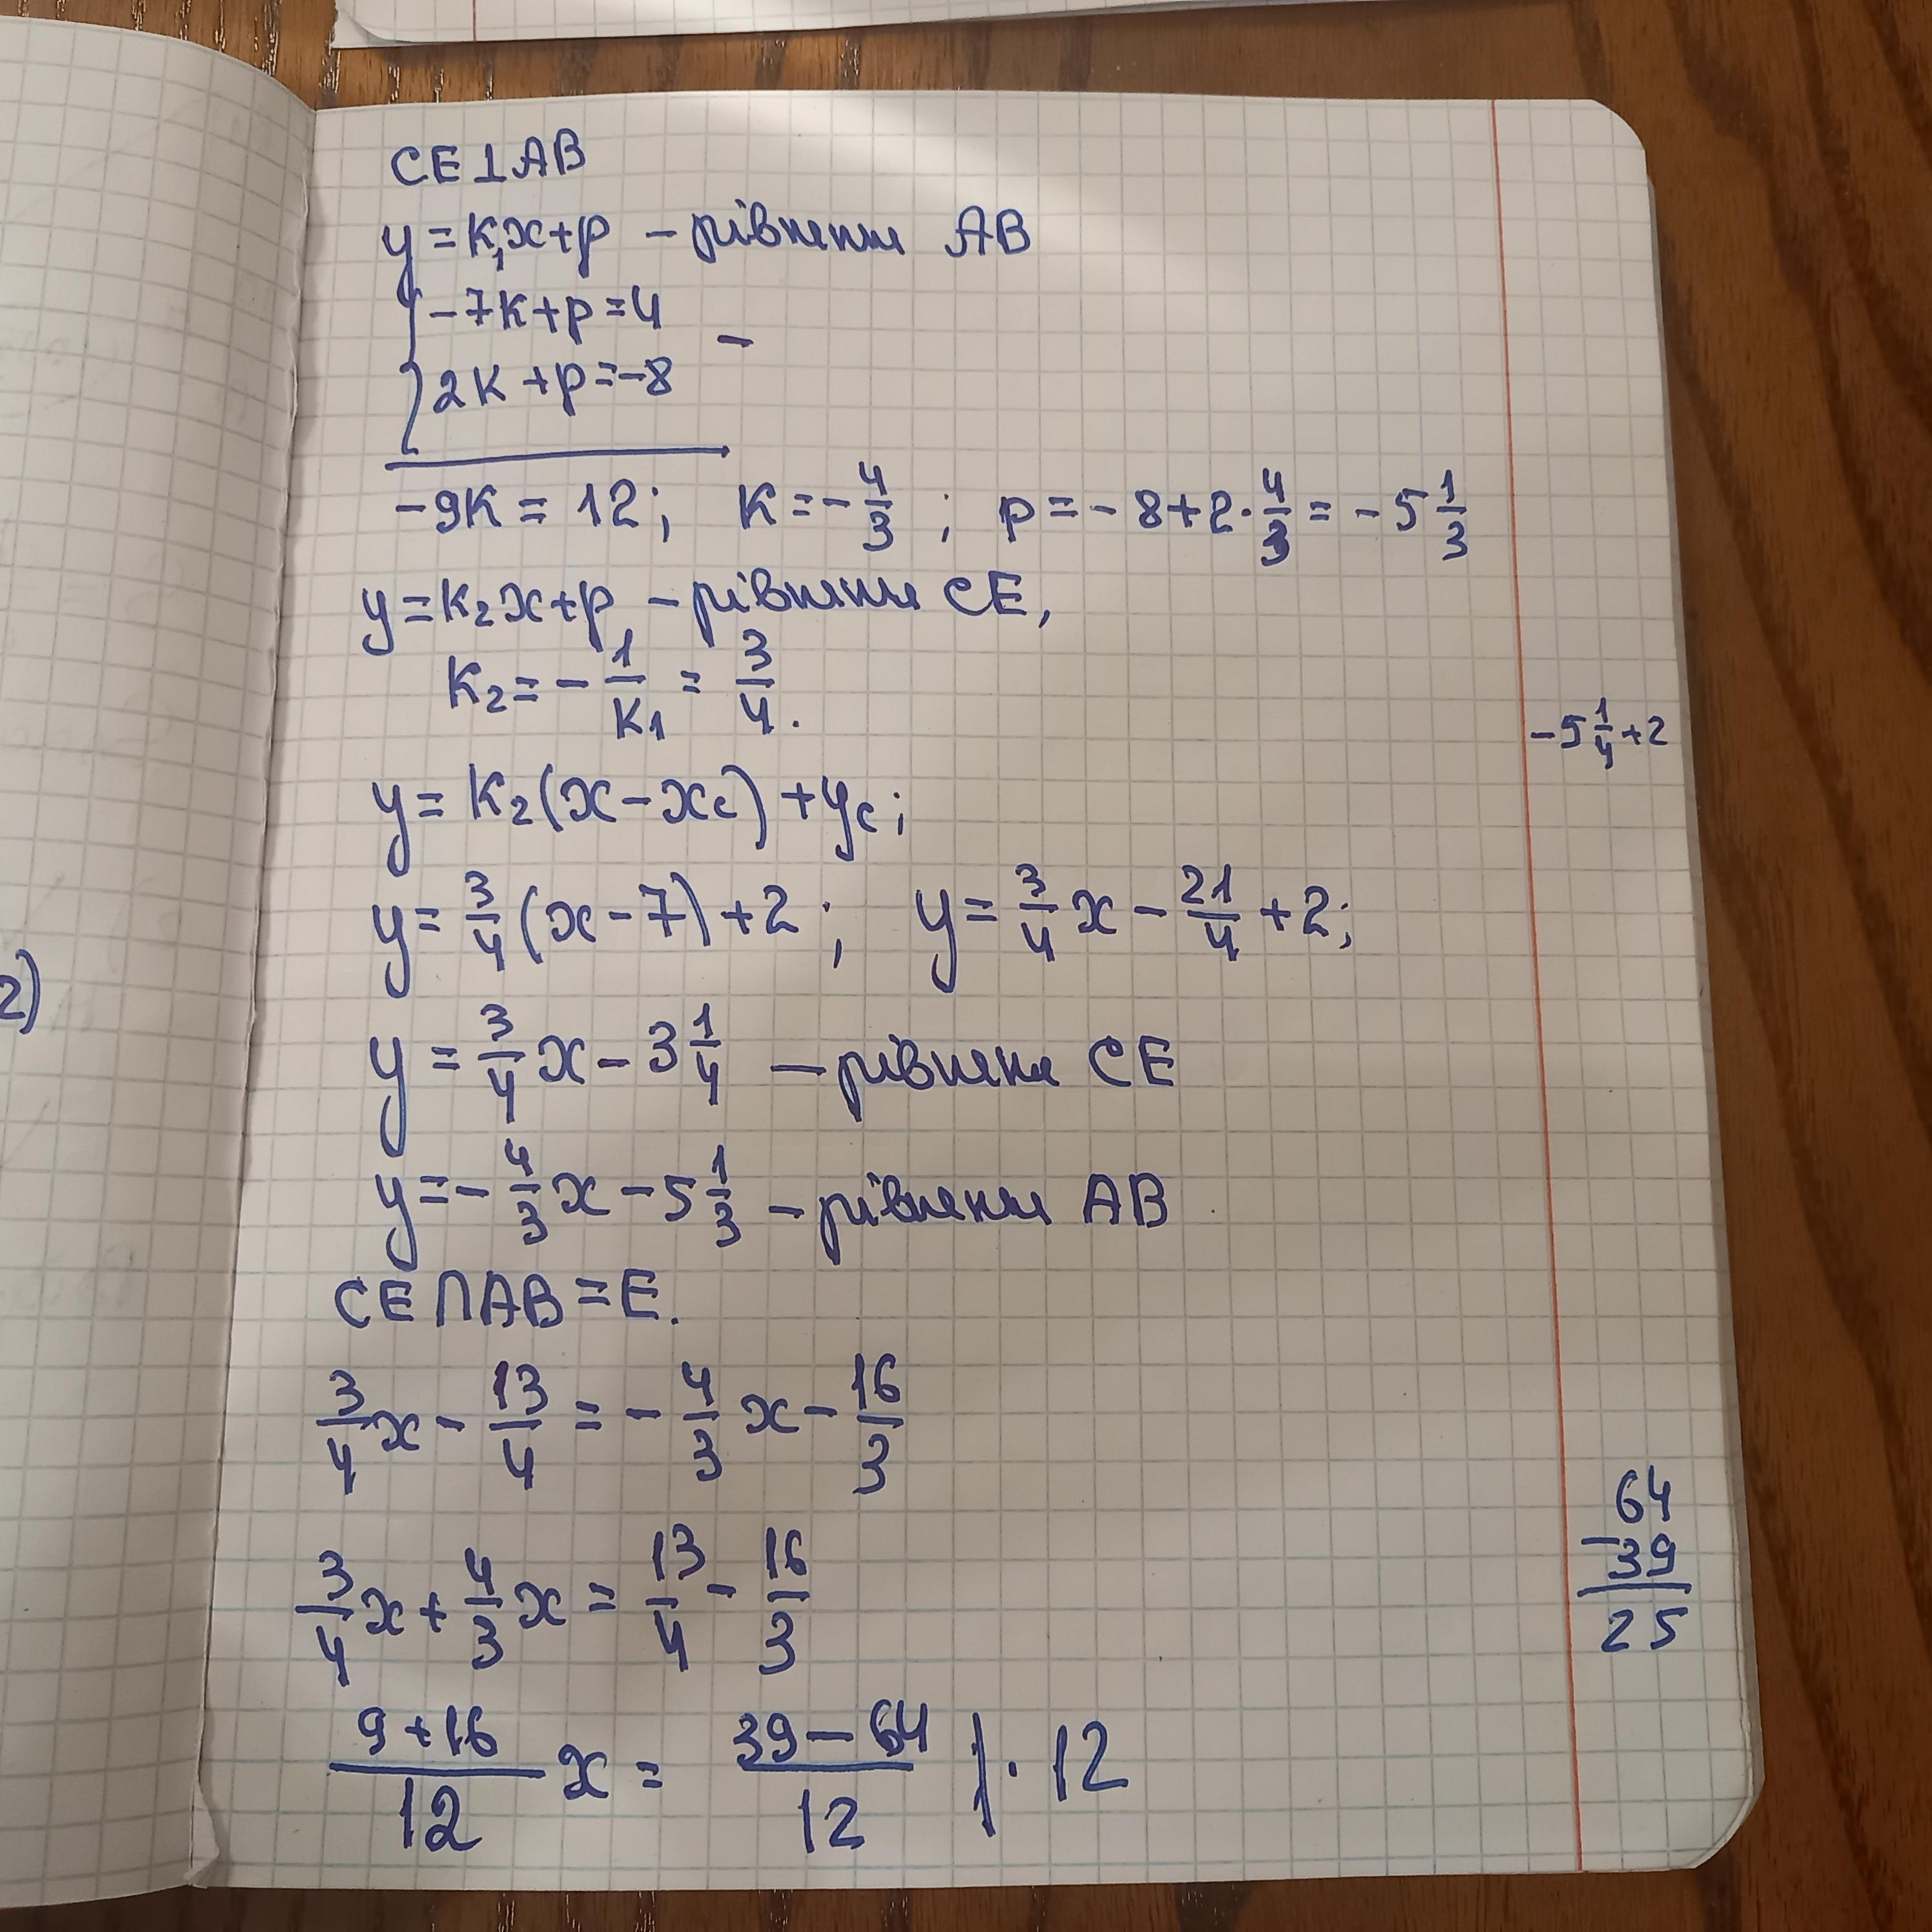 CE⊥AB
y=k₁x+p – рівнення AB
{-7k+p=4
2k+p=-8 –
-9k=12; k=-4/3; p=-8+2·4/3=-5 1/3
y=k₂x+p – рівнення CE,
k₂=-1/k₁=3/4.
-5 1/4+2
y=k₂(x-xc)+yc;
y=3/4(x-7)+2; y=3/4x-21/4+2;
y=3/4x-3 1/4 – рівнення CE
y=-4/3x-5 1/3 – рівнення AB
CE∩AB=E.
3/4x-13/4=-4/3x-16/3
64
3/4x+4/3x=13/4-16/3
-39
25
(9+16)/12 x=(39-64)/12 |·12
2)